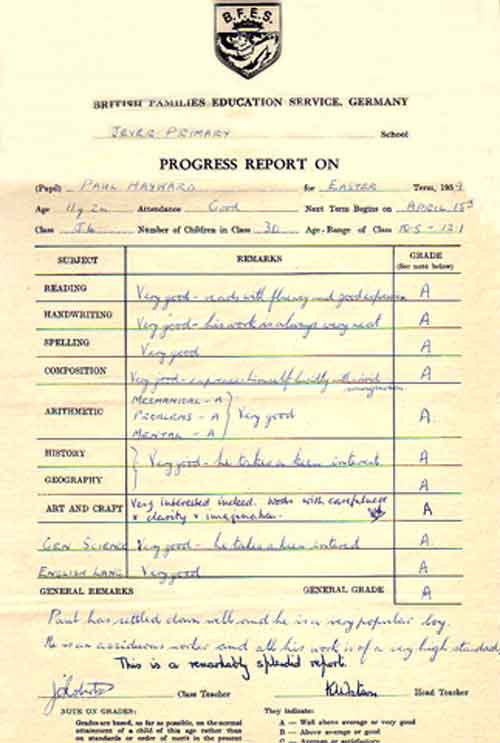 B.F.E.S.
BRITISH FAMILIES EDUCATION SERVICE, GERMANY
JEVER PRIMARY School
PROGRESS REPORT ON
(Pupil) PAUL HAYWARD for EASTER Term, 1959
Age 11y 2m Attendance Good Next Term Begins on APRIL 15
Class J4 Number of Children in Class 30 Age-Range of Class 10.5 - 12.1
SUBJECT REMARKS GRADE
(See note below)
READING Very good - reads with fluency and good expression A
HANDWRITING Very good - his work is always very neat A
SPELLING Very good A
COMPOSITION Very good - expresses himself lucidly with vivid imagination A
MECHANICAL - A
ARITHMETIC PROBLEMS - A Very good A
MENTAL - A
HISTORY Very good - he takes a keen interest A
GEOGRAPHY A
ART AND CRAFT Very interested indeed. Works with carefulness A
& clarity & imagination.
GEN SCIENCE Very good - he takes a keen interest A
ENGLISH LANG Very good A
GENERAL REMARKS GENERAL GRADE A
Paul has settled down well and he is a very popular boy.
He is an assiduous worker and all his work is of a very high standard
This is a remarkably splendid report.
Class Teacher K Watson Head Teacher
NOTE ON GRADES: They indicate:
Grades are based, as far as possible, on the normal A — Well above average or very good
attainment of a child of this age rather than B — Above average or good
on standards or order of merit in the present C — Average or satisfactory